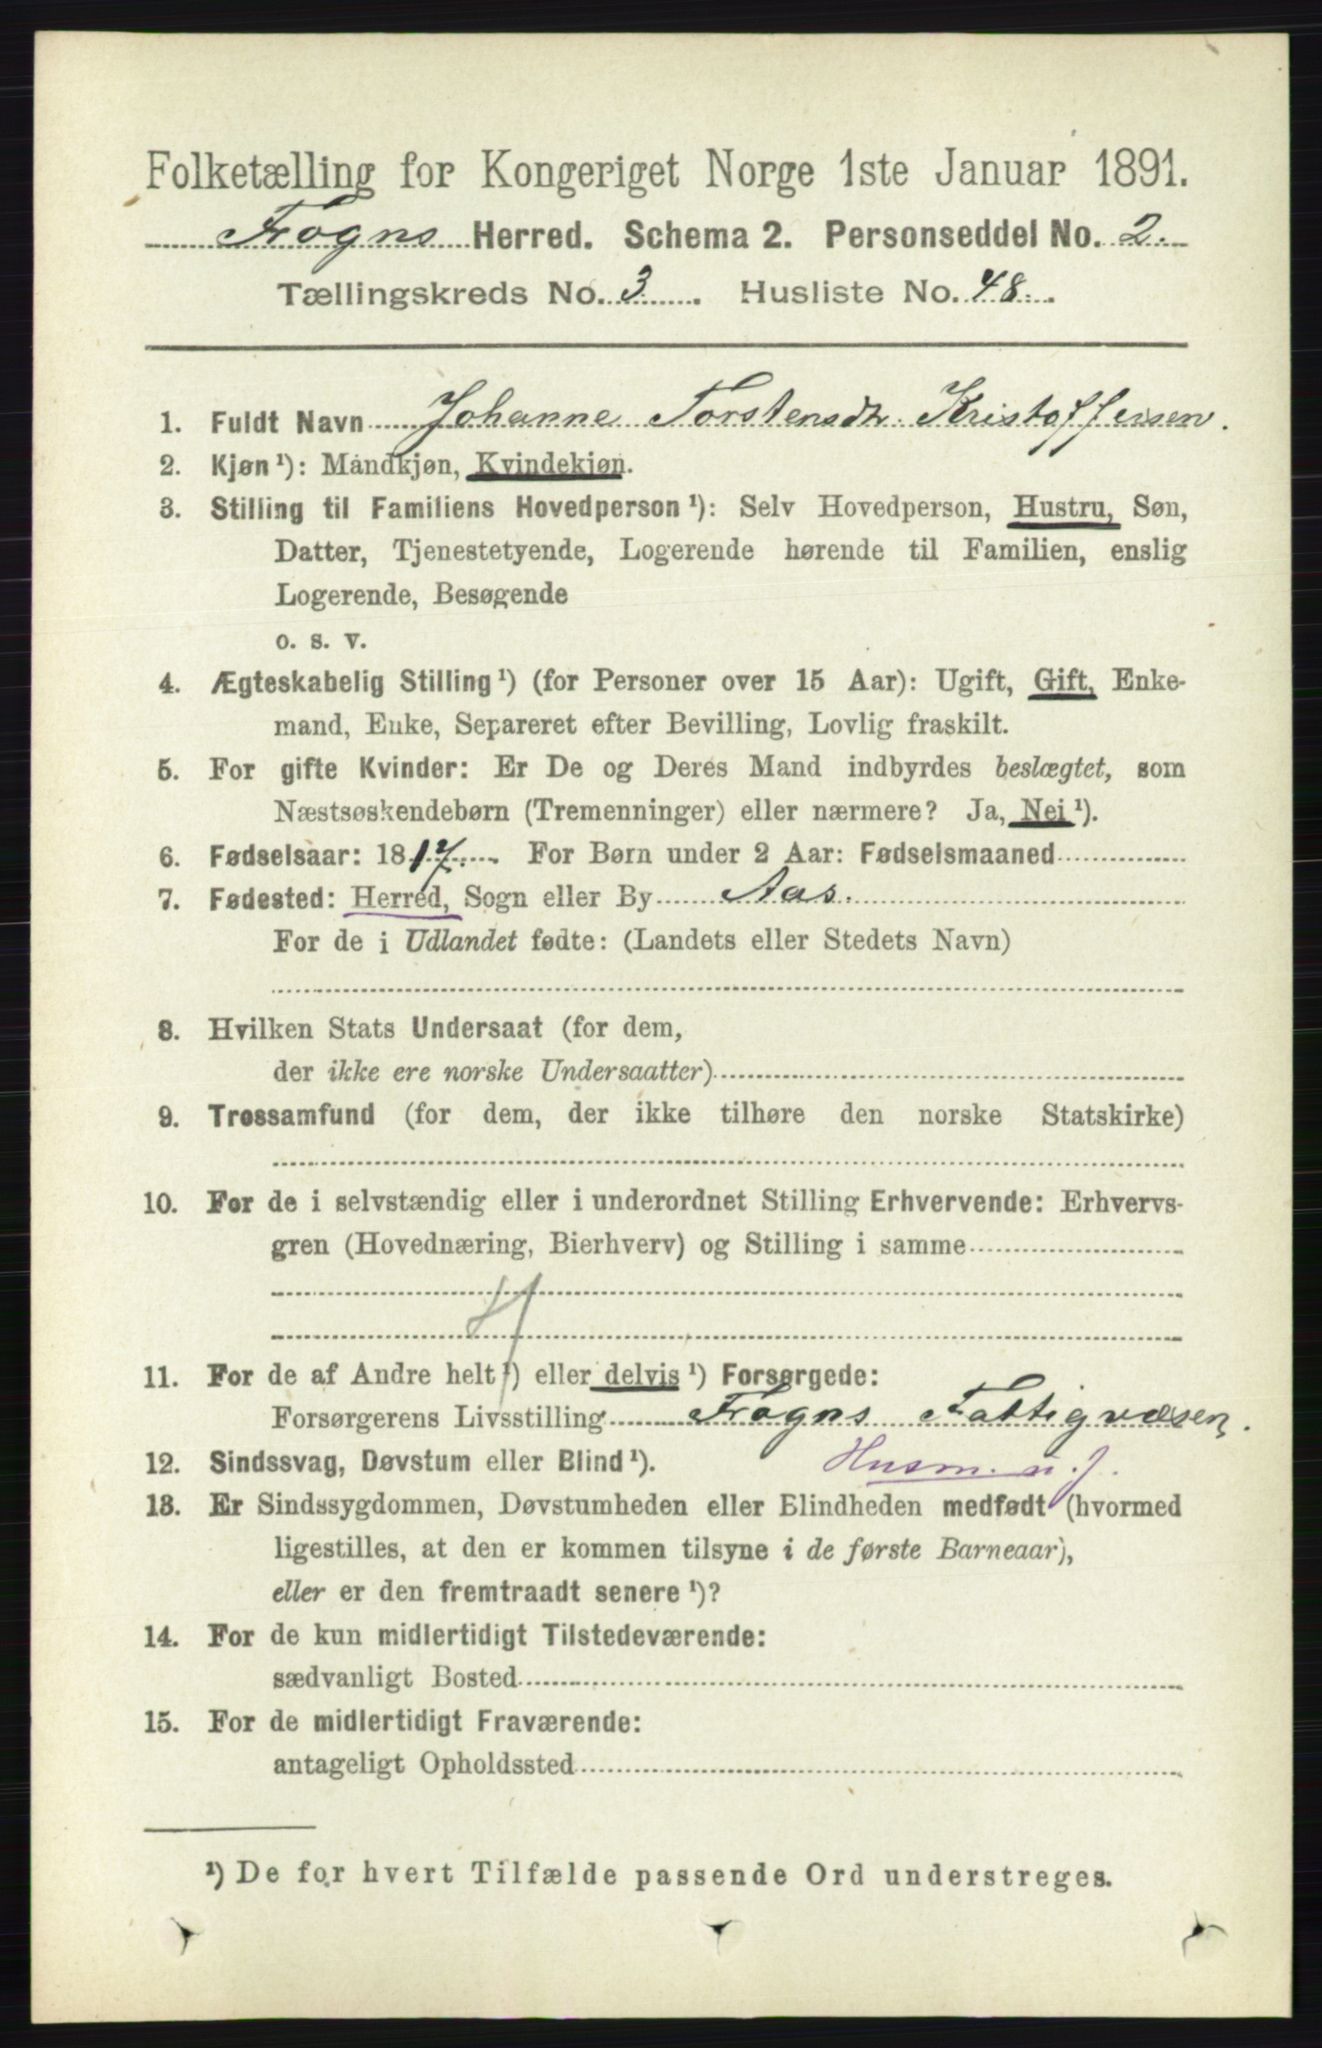 Folketælling for Kongeriget Norge 1ste Januar 1891.
Frogns Herred. Schema 2. Personseddel No. 2.
Tællingskreds No. 3. Husliste No. 48.
1. Fuldt Navn Johanne Torstensdtr. Kristoffersen.
2. Kjøn ¹): Mandkjøn, Kvindekjøn.
3. Stilling til Familiens Hovedperson ¹): Selv Hovedperson, Hustru, Søn,
Datter, Tjenestetyende, Logerende hørende til Familien, enslig
Logerende, Besøgende
o. s. v.
4. Ægteskabelig Stilling ¹) (for Personer over 15 Aar): Ugift, Gift, Enke-
mand, Enke, Separeret efter Bevilling, Lovlig fraskilt.
5. For gifte Kvinder: Er De og Deres Mand indbyrdes beslægtet, som
Næstsøskendebørn (Tremenninger) eller nærmere? Ja, Nei ¹).
6. Fødselsaar: 1817. For Børn under 2 Aar: Fødselsmaaned
7. Fødested: Herred, Sogn eller By Aas.
For de i Udlandet fødte: (Landets eller Stedets Navn)
8. Hvilken Stats Undersaat (for dem,
der ikke ere norske Undersaatter)
9. Trossamfund (for dem, der ikke tilhøre den norske Statskirke)
10. For de i selvstændig eller i underordnet Stilling Erhvervende: Erhvervs-
gren (Hovednæring, Bierhverv) og Stilling i samme
11. For de af Andre helt ¹) eller delvis ¹) Forsørgede:
Forsørgerens Livsstilling Frogns Fattigvæsen.
12. Sindssvag, Døvstum eller Blind ¹). Husm. u. j.
13. Er Sindssygdommen, Døvstumheden eller Blindheden medfødt (hvormed
ligestilles, at den er kommen tilsyne i de første Barneaar),
eller er den fremtraadt senere ¹)?
14. For de kun midlertidigt Tilstedeværende:
sædvanligt Bosted
15. For de midlertidigt Fraværende:
antageligt Opholdssted
¹) De for hvert Tilfælde passende Ord understreges.